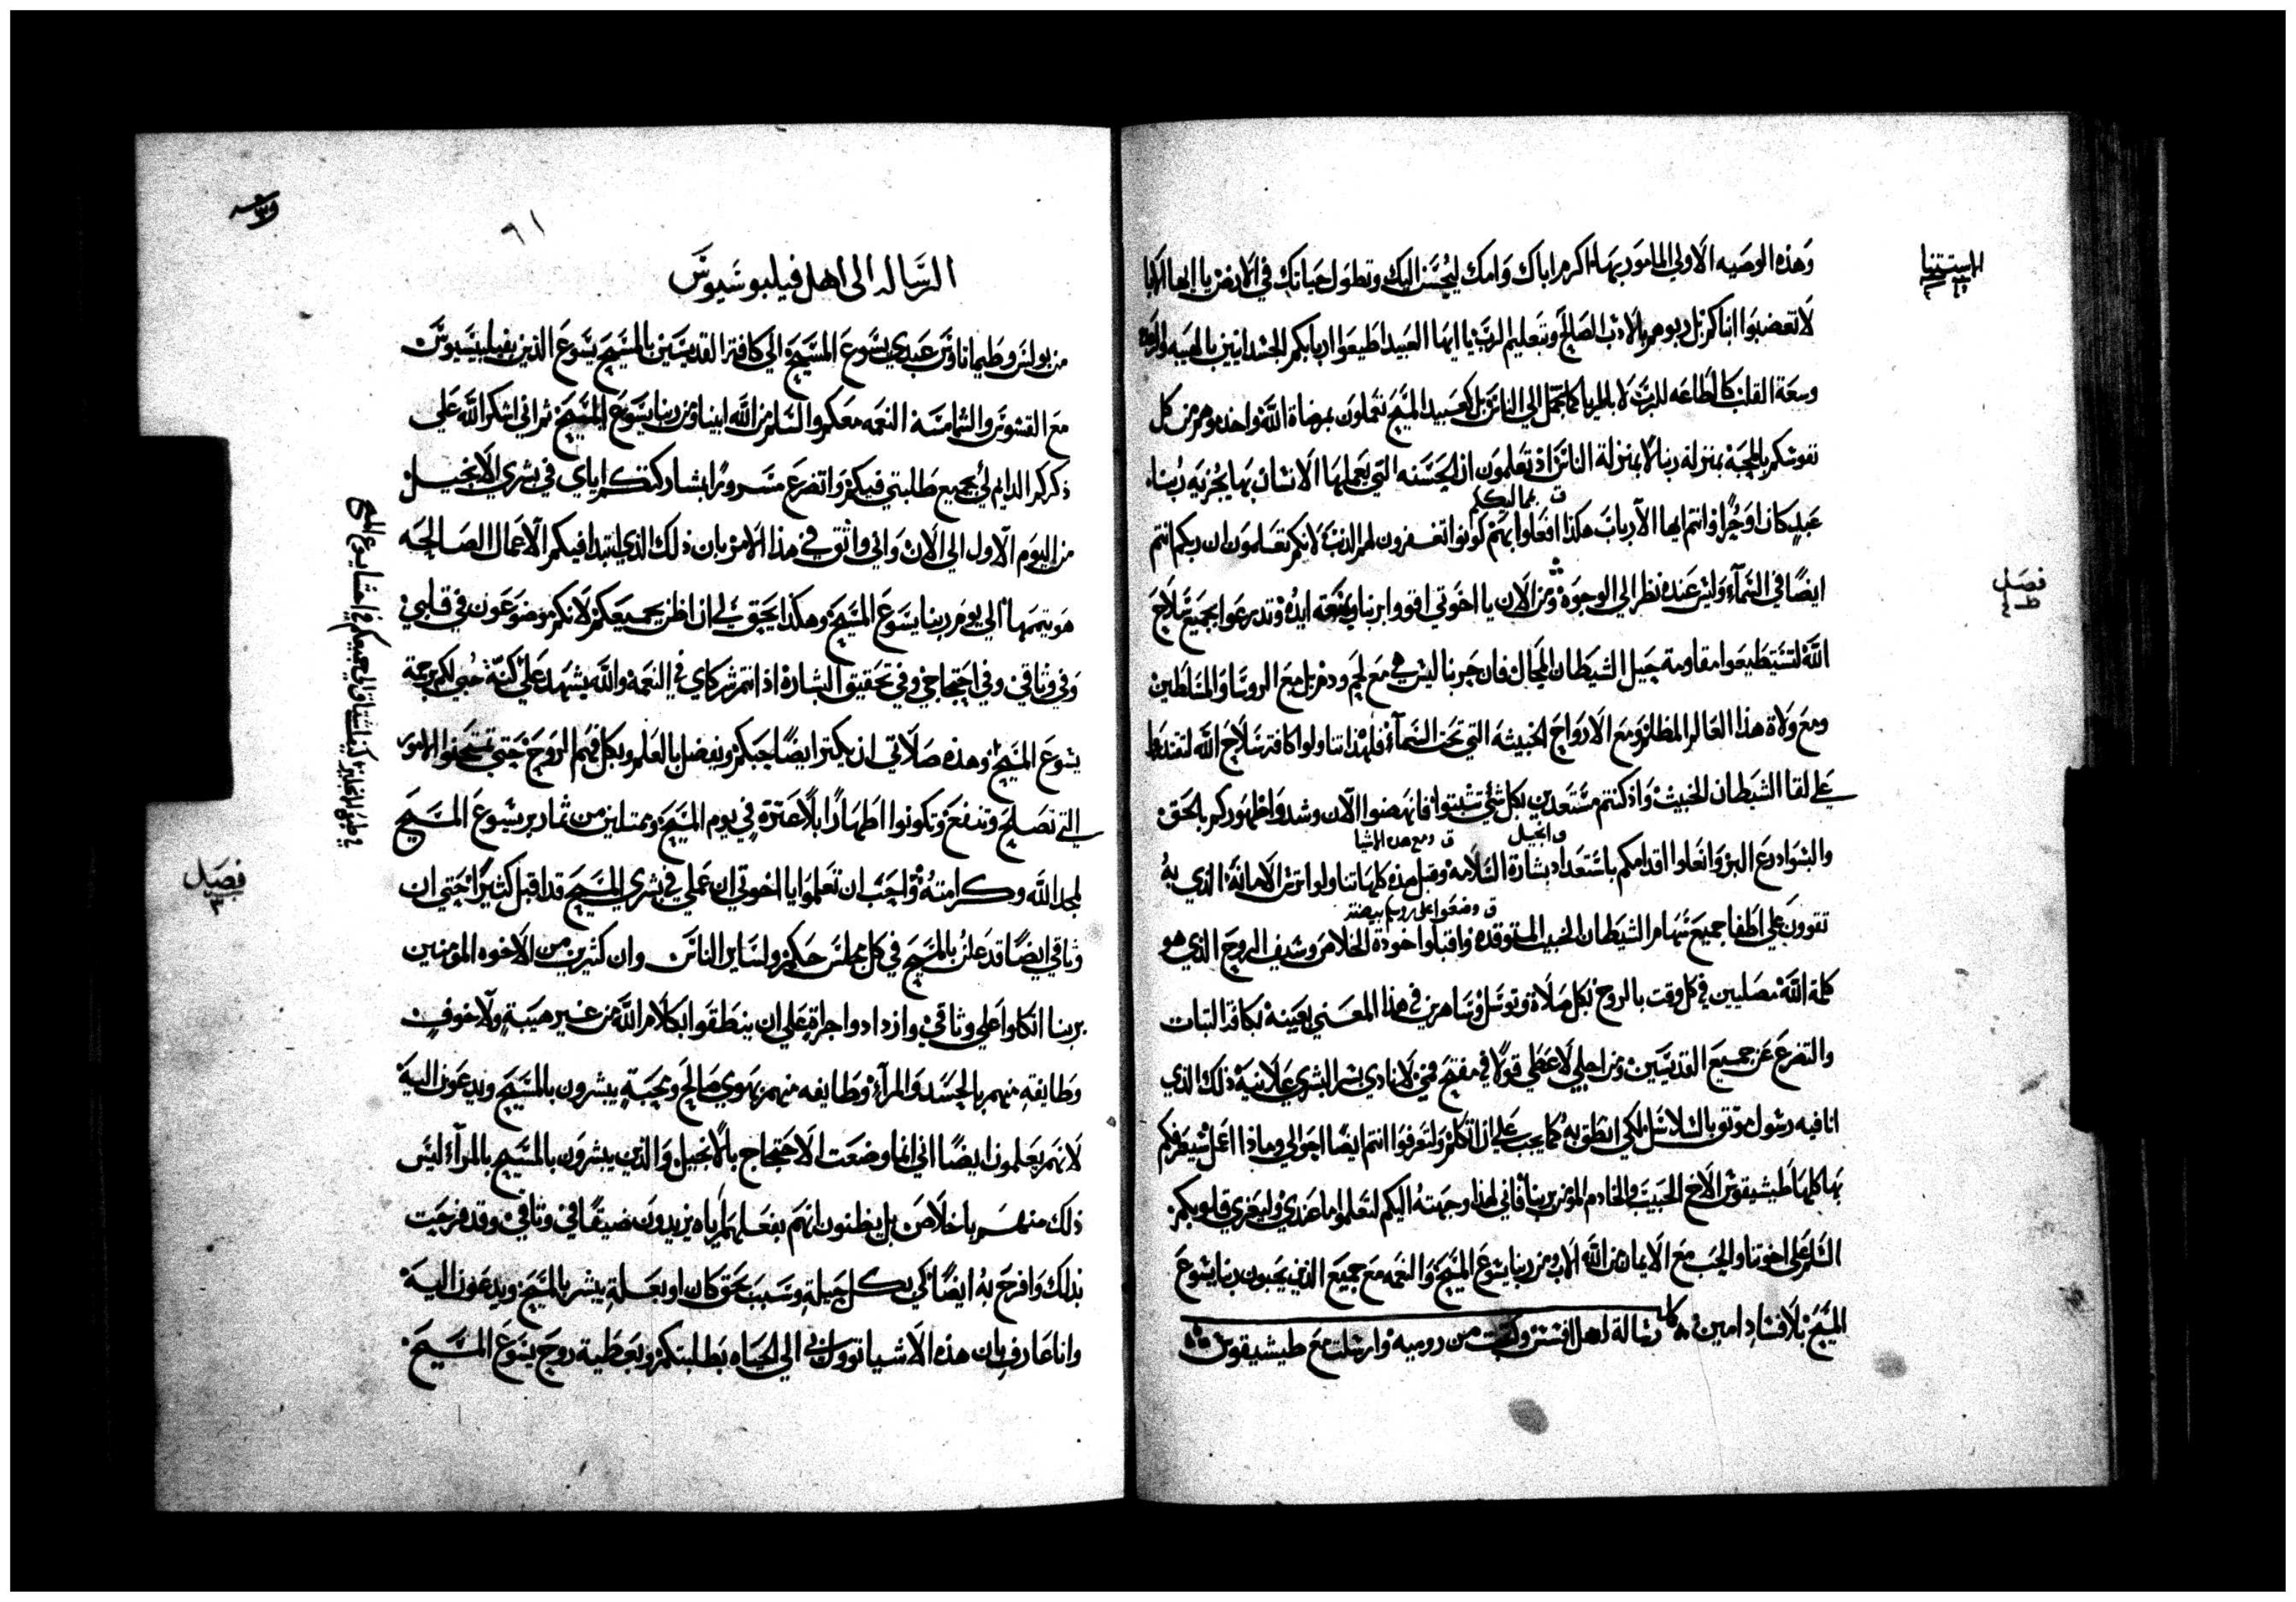 وهذه الوصيه الاولي المامور بها اكرم اباك وامك ليحسن اليك وتطول حياتك في الارض يا ايها الابا
لا تغضبوا ابناكم بل ربوهم بالادب الصالح وتعليم الرب يا ايها العبيد اطيعوا اربابكم الجسدانيين بالهيبه والرعده
وسعة القلب كالطاعه للرب لا بالمرايا كما تجمل الي الناس بل كعبيد المسيح تعملون بمرضاة الله واخدموهم من كل
نفوسكم بالمحبة بمنزلة ربنا لا بمنزلة الناس اذ تعلمون ان الحسنه التي يعملها الانسان بها يجزيه ربنا
ق بمماليككم
عبد كان او حرا وانتم ايها الارباب هكذا افعلوا بهم كونوا تغفرون لهم الذنب لانكم تعلمون ان ربكم انتم
ايضا في السماء وليس عنده نظر الي الوجوه ومن الان يا اخوتي اقووا بربنا وبمنعة ايده وتدرعوا بجميع سلاح
الله لتستطيعوا مقاومة حيل الشيطان المحال فان حربنا ليس هي مع لحم ودم بل مع الروسا والمسلطين
ومع ولاة هذا العالم المظلم ومع الارواح الخبيثه التي تحت السماء فلهذا تناولوا كافة سلاح الله لتقتدروا
علي لقا الشيطان الخبيث واذ كنتم مستعدين بكل شي تثبتوا فانهضوا الان وشدوا ظهوركم بالحق
ق انجيل ق ومع هذه الاشيا
والبسوا درع البر وانعلوا اقدامكم باستعداد بشارة السلامه وقبل هذه كلها تناولوا ترس الامانة الذي به
ق وضعوا علي روسكم بيضة
تقوون علي اطفا جميع سهام الشيطان الخبيث المتوقده واقبلوا خودة الخلاص وسيف الروح الذي هو
كلمة الله مصليين في كل وقت بالروح بكل صلاة وتوسل وساهرين في هذا المعني بعينه بكافة الثبات
والتضرع عن جميع القديسين ومن اجلي لاعطي قولا في مفتح فمي لانادي بسر البشري علانية ذلك الذي
انا فيه رسول موثوق بالسلاسل لكي انطق به كما يجب علي ان اتكلم ولتعرفوا انتم ايضا احوالي وماذا اعمل سيعرفكم
بها كلها طيشيقوس الاخ الحبيب والخادم المومن بربنا فاني لهذا وجهته اليكم لتعلموا ما عندي وليعزي قلوبكم
السلم علي اخوتنا والحب مع الايمان من الله الاب ومن ربنا يسوع المسيح والنعمه مع جميع الذين يحبون ربنا يسوع
المسيح بلا فساد امين كمل رسالة اهل افسس وكتبت من روميه وارسلت مع طيشيقوس
الاستثنا
فصل
٦١
الرساله الى اهل فيلبوسيوس
من بولس وطيماثاوس عبدي يسوع المسيح الي كافة القديسين بالمسيح يسوع الذين بفيلبسيوس
مع القسوس والشمامسة النعمه معكم والسلم من الله ابينا ومن ربنا يسوع المسيح ثم اني اشكر الله علي
ذكركم الدايم لي بجميع طلبتي فيكم واتضرع مسرورا بمشاركتكم اياي في بشري الانجيل
من اليوم الاول الي الان واني واثق في هذا الامر بان ذلك الذي ابتدا فيكم الاعمال الصالحه
هو يتممها الي يوم ربنا يسوع المسيح وهكذا يحق لي ان اظن بجميعكم لانكم موضوعون في قلبي
وفي وثاقي وفي احتجاجي وفي تحقيق البشارة اذ انتم شركاي في النعمه والله يشهد علي كنة حبي لكم برحمة
يسوع المسيح وهذه صلاتي ان يكثر ايضا حبكم ويفضل بالعلم وبكل فهم الروح حتي تمتحنوا الامور
التي تصلح وتنفع وتكونوا اطهارا بلا عثرة في يوم المسيح وممتلين من ثمار بر يسوع المسيح
لمجد الله وكرامته واحب ان تعلموا يا اخوتي ان عملي في بشري المسيح قد اقبل كثيرا حتي ان
وثاقي ايضا قد علن بالمسيح في كل مجلس حكم ولساير الناس وان كثيرين من الاخوه المومنين
بربنا اتكلوا علي وثاقي وازدادوا جراة علي ان ينطقوا بكلام الله من غير هيبة ولا خوف
وطايفة منهم بالحسد والمراء وطايفه منهم بهوي صالح ومحبة يبشرون بالمسيح ويدعون اليه
لانهم يعلمون ايضا اني انما وضعت الاحتجاج بالانجيل والذين يبشرون بالمسيح بالمراء ليس
ذلك منهم باخلاص بل يظنون انهم بفعلهم اياه يزيدون ضيقا في وثاقي وقد فرحت
بذلك وافرح به ايضا كي بكل حيلة وسبب بحق كان او بعلة يبشر بالمسيح ويدعون اليه
وانا عارف بان هذه الاشيا توول بي الي الحياه بطلبتكم وبعطية روح يسوع المسيح
فصل
٣